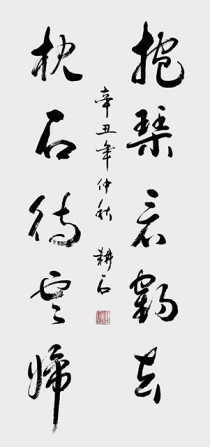 抱琴看鶴去
枕石待雲歸
辛丑年仲秋 耕石